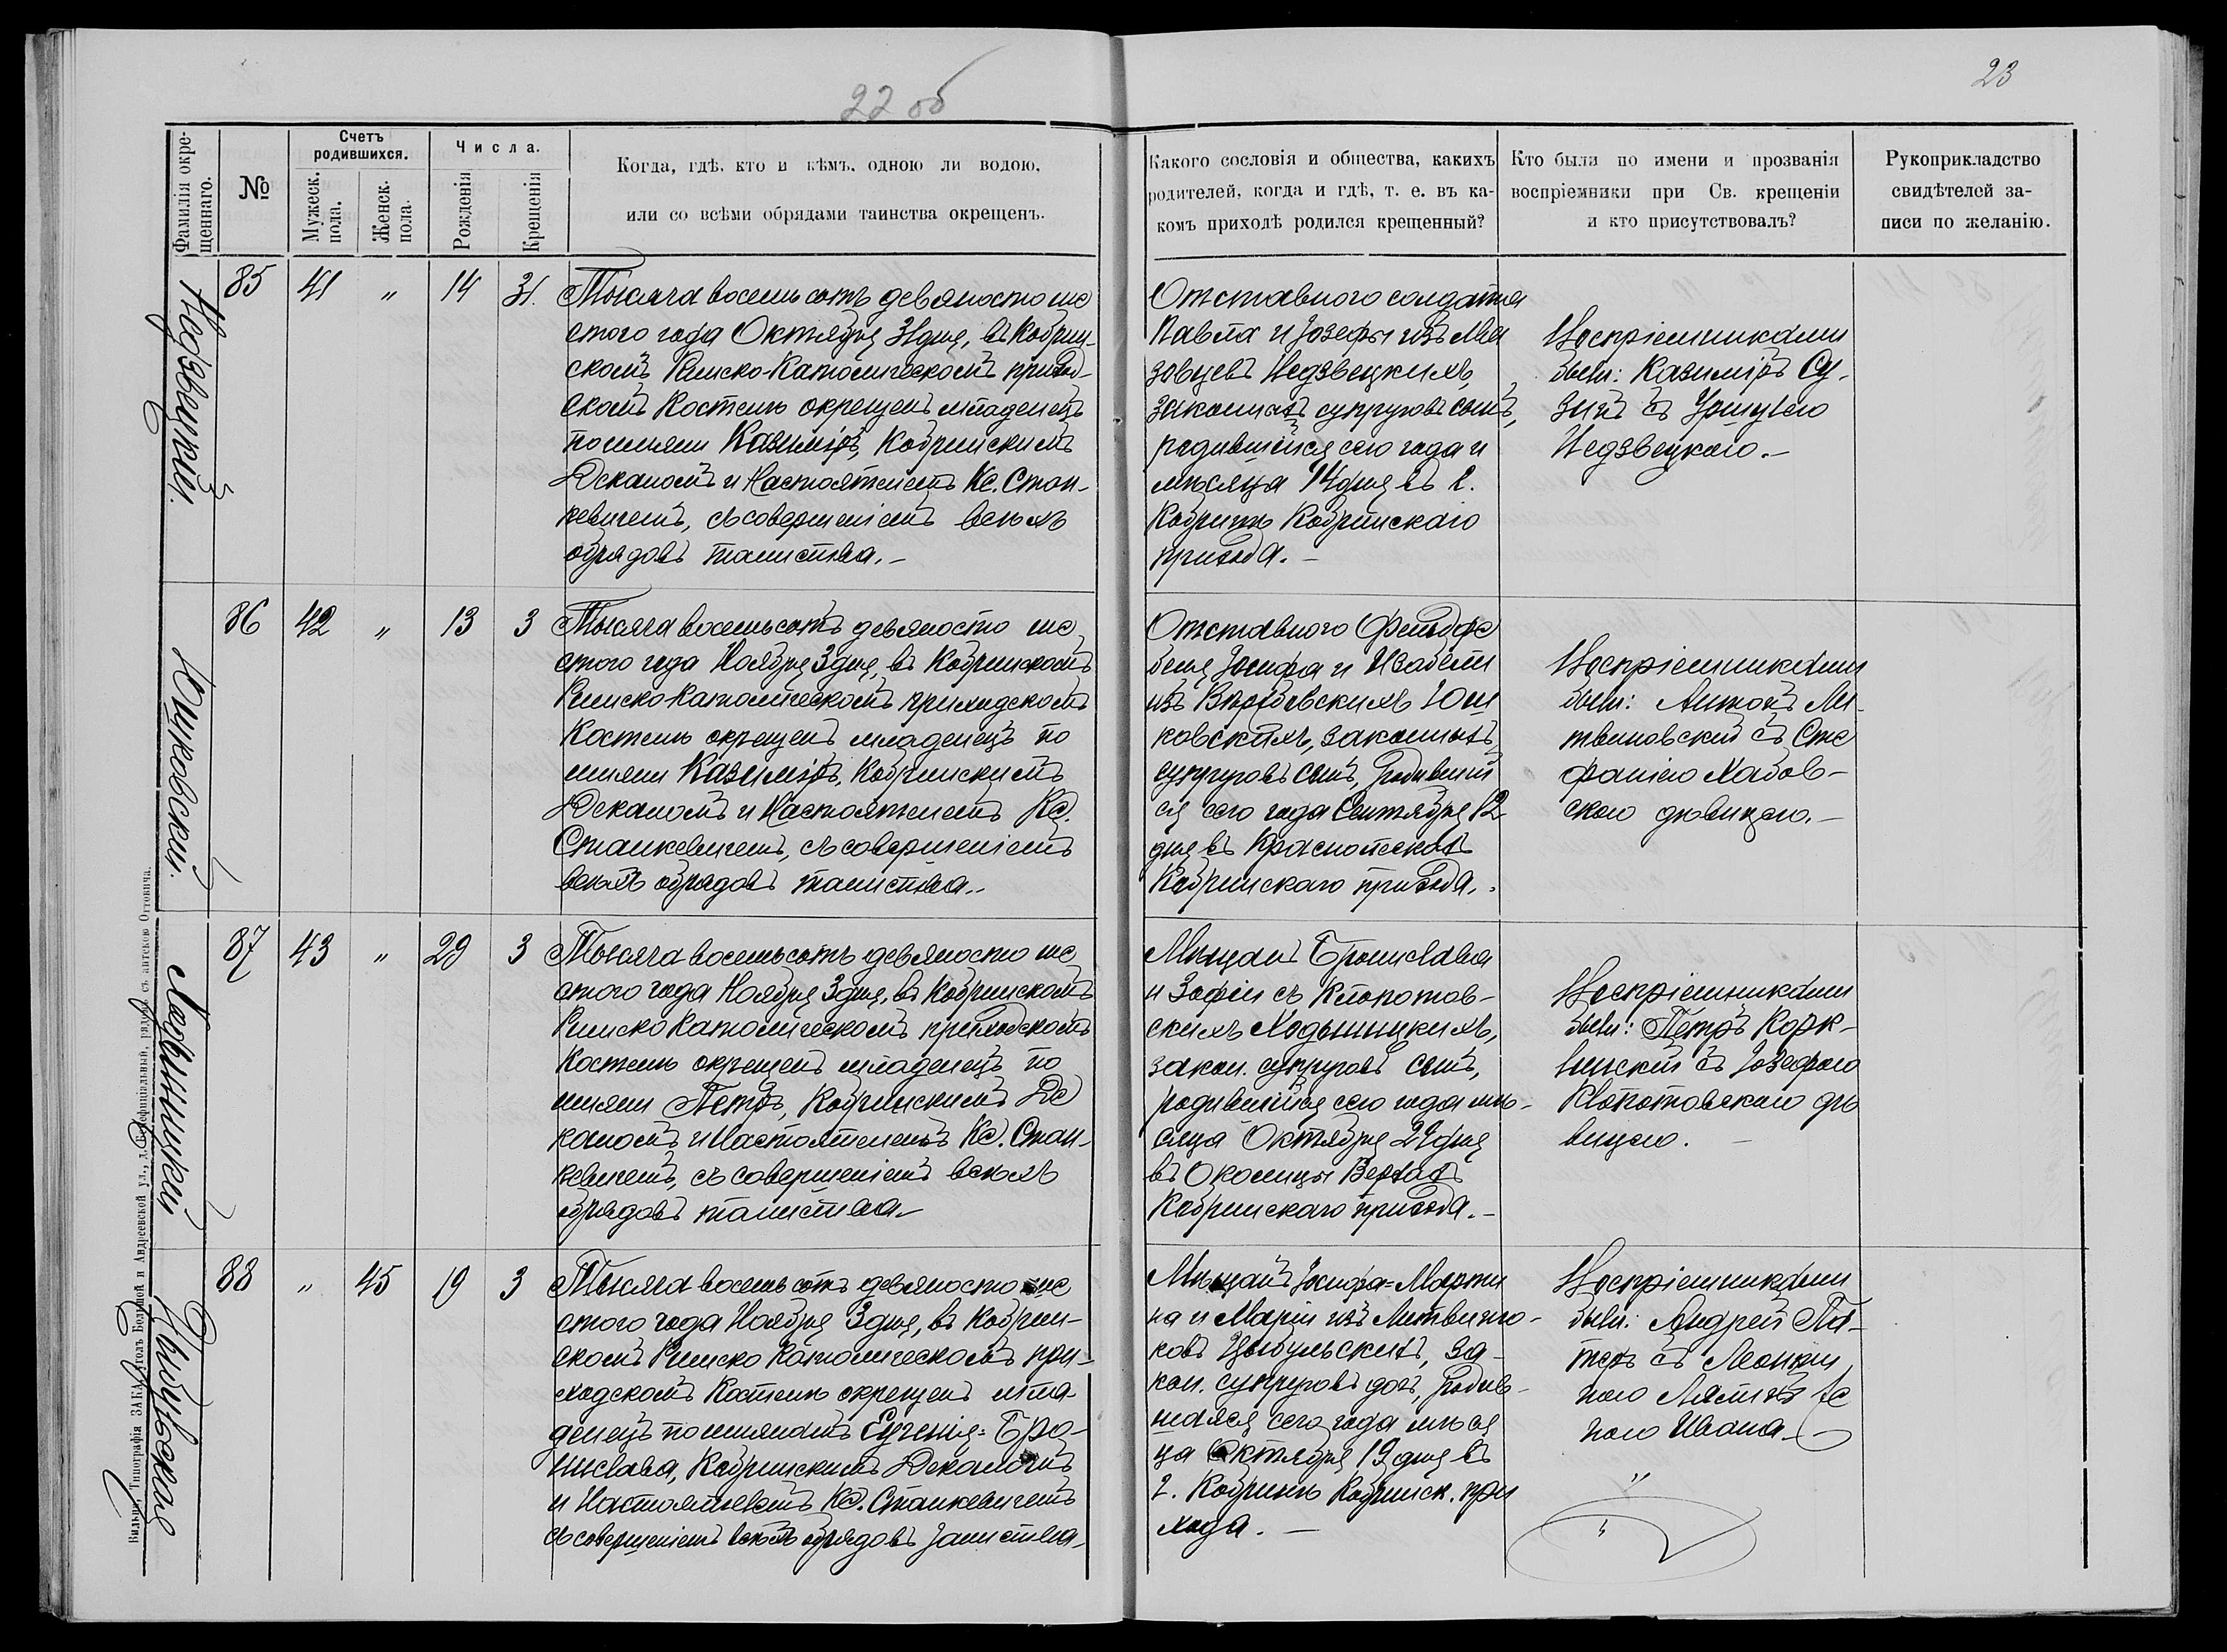 22 об
23
Фамилія окре-
щеннаго.
№
Счетъ
родившихся.
Мужеск.
пола.
Женск.
пола.
Числа.
Рожденія
Крещенія
Когда, гдѣ, кто и кѣмъ, одною ли водою,
или со всѣми обрядами таинства окрещенъ.
Какого сословія и общества, какихъ
родителей, когда и гдѣ, т. е. въ ка-
комъ приходѣ родился крещенный?
Кто были по имени и прозванія
воспріемники при Св. крещеніи
и кто присутствовалъ?
Рукоприкладство
свидѣтелей за-
писи по желанію.
Недзвецкій.
85 41 " 14 31.
Тысяча восемь сотъ девяносто ше
стого года Октября 31 дня, въ Кобрин-
скомъ Римско-Католическомъ приход-
скомъ Костелѣ окрещенъ младенецъ
по имени Казиміръ, Кобринскимъ
Деканомъ и Настоятелемъ Кс. Стан-
кевичемъ, съ совершеніемъ всѣхъ
обрядовъ таинства.-
Отставного солдата
Павла и Іозефы изъ Ма
зовцевъ Недзвецкихъ,
законныхъ супруговъ сынъ,
родившійся сего года и
мѣсяца 14 дня въ г.
Кобринѣ Кобринскаго
прихода.-
Воспріемниками
были: Казиміръ Су-
зинъ съ Уршулею
Недзвецкою.-
Юшковскій.
86 42 " 13 3
Тысяча восемьсотъ девяносто ше
стого года Ноября 3 дня, въ Кобринскомъ
Римско-Католическомъ приходскомъ
Костелѣ окрещенъ младенецъ по
имени Казиміръ, Кобринскимъ
Деканомъ и Настоятелемъ Кс.
Станкевичемъ, съ совершеніемъ
всѣхъ обрядовъ таинства.-
Отставного Фельдфе
беля Іосифа и Изабели
изъ Юш
ковскихъ, законныхъ
супруговъ сынъ, родившій
ся сего года Сентября 12
дня въ
Кобринскаго прихода.-
Воспріемниками
были: Антонъ Ли-
твиновскій съ Сте
фаніею
скою дѣвицею.-
Ходыницкій
87 43 " 29 3
Тысяча восемьсотъ девяносто ше
стого года Ноября 3 дня, въ Кобринскомъ
Римско Католическомъ приходскомъ
Костелѣ окрещенъ младенецъ по
имени Петръ, Кобринскимъ Де
каномъ и Настоятелемъ Кс. Стан-
кевичемъ, съ совершеніемъ всѣхъ
обрядовъ таинства.-
Мѣщанъ Бронислава
и Зофіи съ Клопотов-
скихъ Ходыницкихъ,
закон. супруговъ сынъ,
родившійся сего года мѣ-
сяца Октября 29 дня
въ Околицы
Кобринскаго прихода.-
Воспріемниками
были: Петръ
съ Іозефою
Клопотовскою дѣ
вицею.-
Цыбульская
88 " 45 19 3
Тысяча восемь сотъ девяносто ше
стого года Ноября 3 дня, въ Кобрин-
скомъ Римско Католическомъ при-
ходскомъ Костелѣ окрещенъ мла
денецъ по именамъ Евгенія=Бро-
нислава, Кобринскимъ Деканомъ
и Настоятелемъ Кс. Станкевичемъ
съ совершеніемъ всѣхъ обрядовъ таинства.
Мѣщанъ Іосифа=Марти
на и Маріи изъ Литвино-
ковъ Цыбульскихъ, за-
кон. супруговъ дочь, родив-
шаяся сего года мѣся
ца Октября 19 дня въ
г. Кобринѣ Кобринск. при
хода.-
Воспріемниками
были: Андрей
съ
же
ною Ивана.
Вильна, Типографія ЗАКА уголъ Большой и Андреевской ул., д. Бенефиціальный, рядомъ съ аптекою Оттовича.